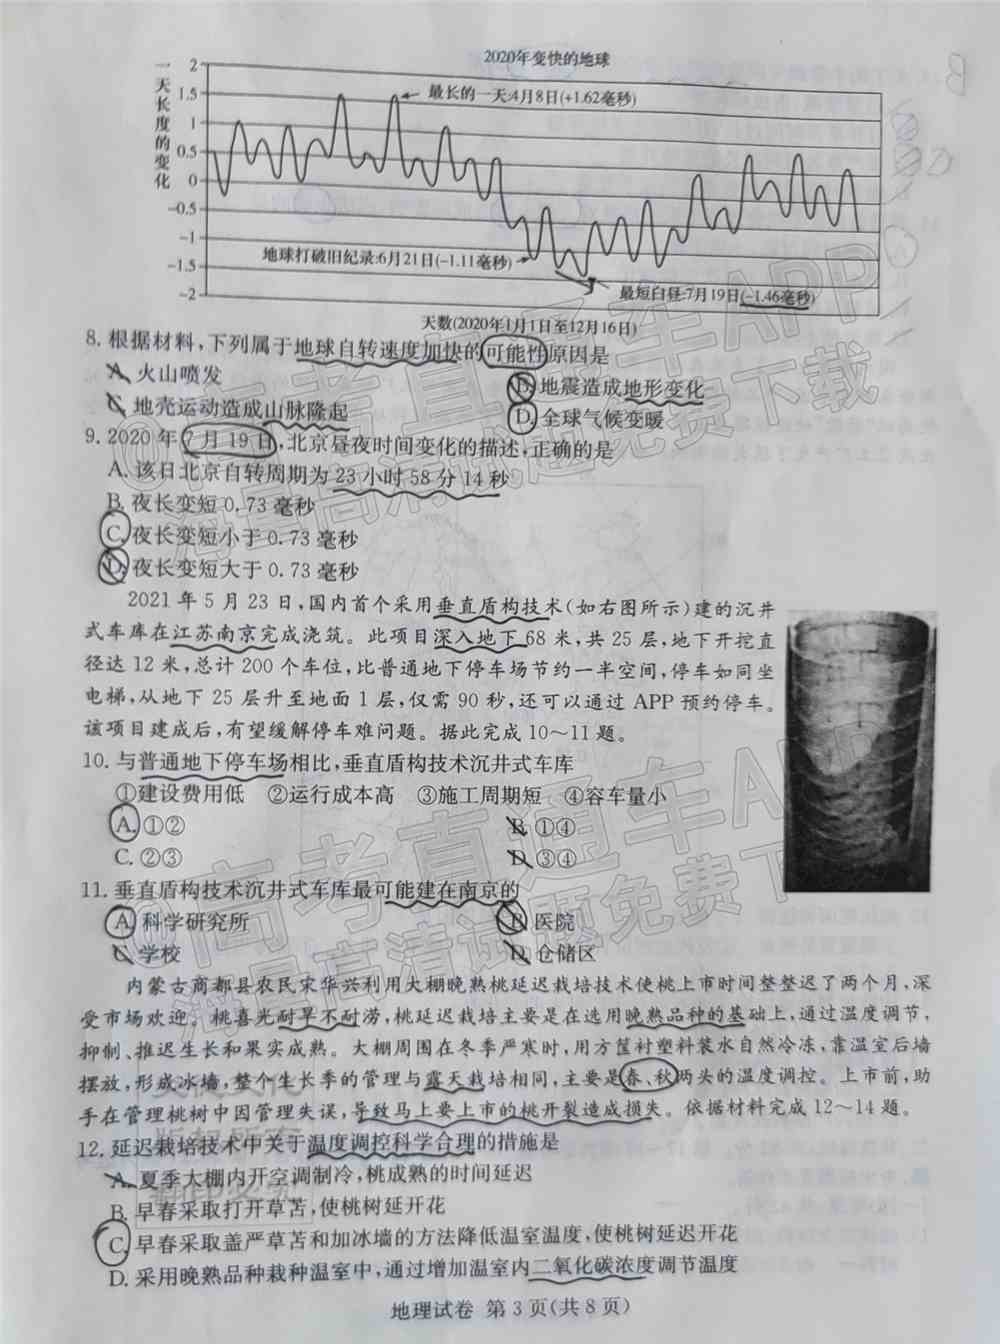 2020年变快的地球
一天长度的变化
2
1.5
1
0.5
0
-0.5
-1
-1.5
-2
最长的一天:4月8日(+1.62毫秒)
地球打破旧纪录:6月21日(-1.11毫秒)
最短白昼:7月19日(-1.46毫秒)
天数(2020年1月1日至12月16日)
8.根据材料,下列属于地球自转速度加快的可能性原因是
A.火山喷发
B.地震造成地形变化
C.地壳运动造成山脉隆起
D.全球气候变暖
9.2020年7月19日,北京昼夜时间变化的描述,正确的是
A.该日北京自转周期为23小时58分14秒
B.夜长变短0.73毫秒
C.夜长变短小于0.73毫秒
D.夜长变短大于0.73毫秒
2021年5月23日,国内首个采用垂直盾构技术(如右图所示)建的沉井
式车库在江苏南京完成浇筑。此项目深入地下68米,共25层,地下开挖直
径达12米,总计200个车位,比普通地下停车场节约一半空间,停车如同坐
电梯,从地下25层升至地面1层,仅需90秒,还可以通过APP预约停车。
该项目建成后,有望缓解停车难问题。据此完成10～11题。
10.与普通地下停车场相比,垂直盾构技术沉井式车库
①建设费用低 ②运行成本高 ③施工周期短 ④容车量小
A.①②
B.①④
C.②③
D.③④
11.垂直盾构技术沉井式车库最可能建在南京的
A.科学研究所
B.医院
C.学校
D.仓储区
内蒙古商都县农民宋华兴利用大棚晚熟桃延迟栽培技术使桃上市时间整整迟了两个月,深
受市场欢迎。桃喜光耐旱不耐涝,桃延迟栽培主要是在选用晚熟品种的基础上,通过温度调节,
抑制、推迟生长和果实成熟。大棚周围在冬季严寒时,用方筐衬塑料装水自然冷冻,靠温室后墙
摆放,形成冰墙,整个生长季的管理与露天栽培相同,主要是春、秋两头的温度调控。上市前,助
手在管理桃树中因管理失误,导致马上要上市的桃开裂造成损失。依据材料完成12～14题。
12.延迟栽培技术中关于温度调控科学合理的措施是
A.夏季大棚内开空调制冷,桃成熟的时间延迟
B.早春采取打开草苫,使桃树延开花
C.早春采取盖严草苫和加冰墙的方法降低温室温度,使桃树延迟开花
D.采用晚熟品种栽种温室中,通过增加温室内二氧化碳浓度调节温度
地理试卷 第3页(共8页)